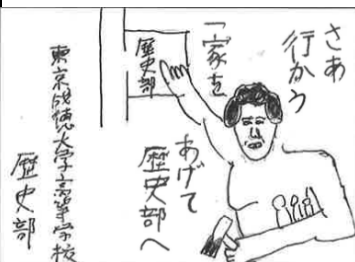 さあ
行かう
一家を
あげて
歴史部へ
歴史部
東京成徳大学高等学校
歴史部